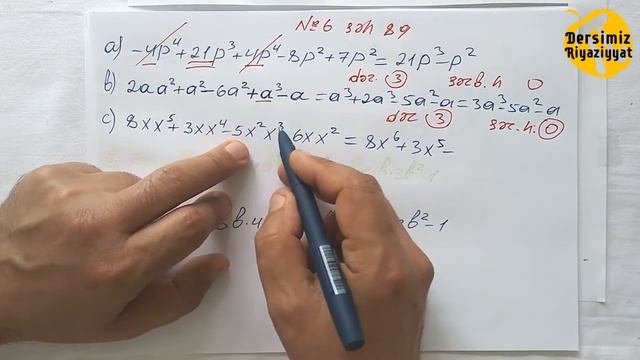 Dersimiz
Riyaziyyat
№6 səh 89
a) -4p⁴+21p³+4p⁴-8p²+7p²=21p³-p²
dər. 3 sərb.h 0
b) 2aa²+a²-6a²+a³-a=a³+2a³-5a²-a=3a³-5a²-a
dər 3 sərb.h. 0
c) 8xx⁵+3xx⁴-5x²x³ 6xx²=8x⁶+3x⁵-